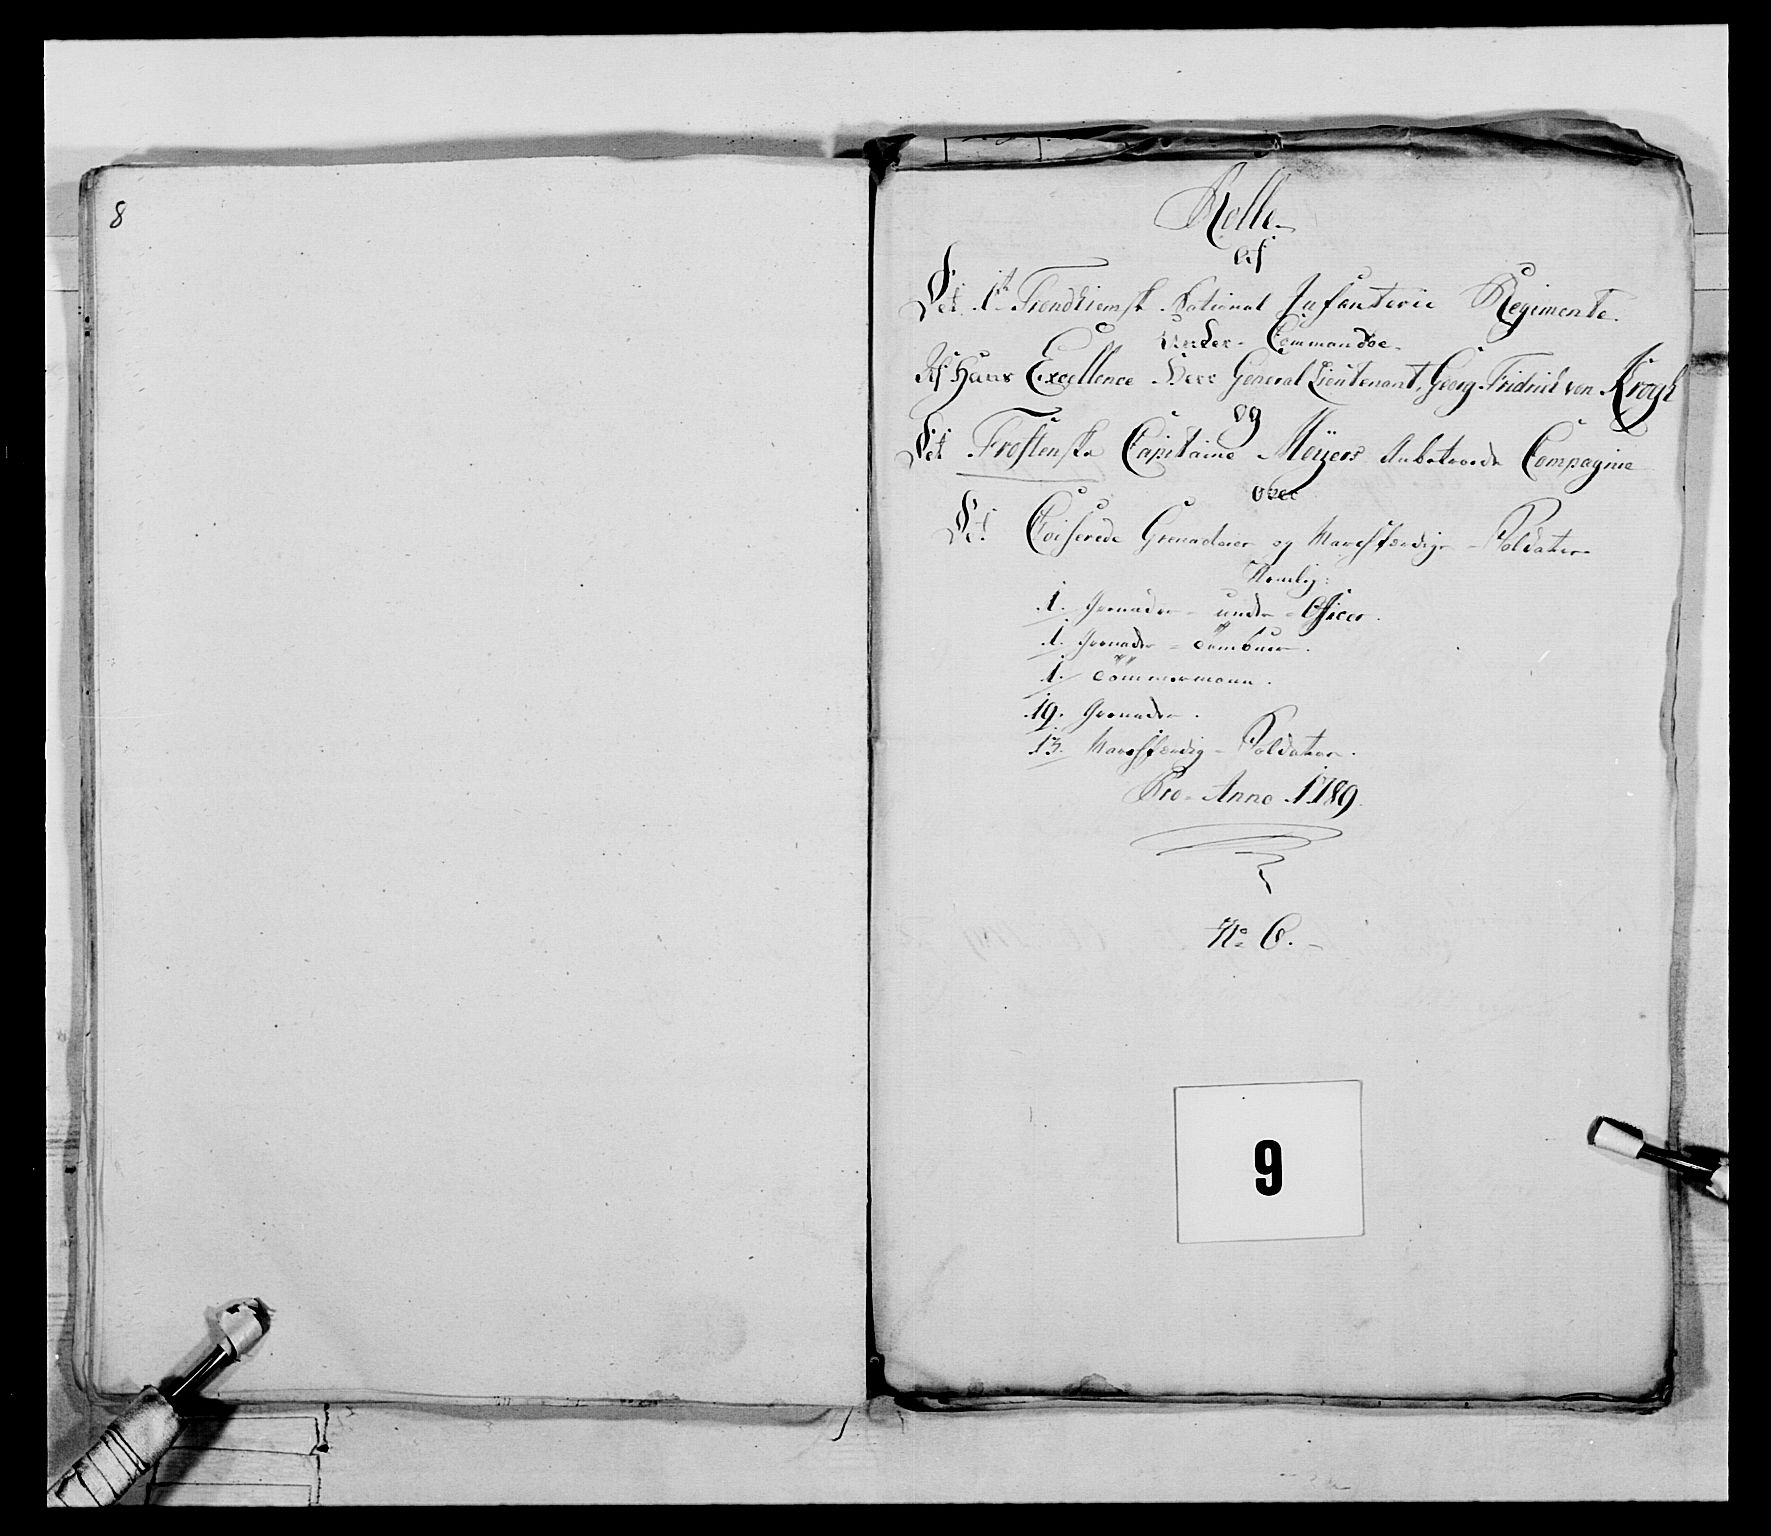 8
Rolle
Af
Det 1te Trondhiemsk National Infanterie Regimente.
Under Commandoe
Af Hans Excellence Herr General Lieutenant, Georg Fridrich von Krogh
og
Det Frostenske Capitaine Meÿers Anbetroede Compagnie
over
De Coiserede Grenaderer og Marchfærdige Soldater
Nemlig:
1. Grenader under Officer.
1. Grenader Tambuer.
1. Tömmermann.
19. Grenader.
13. Marchfærdig Soldater.
Pro Anno 1789.
No 6.
9